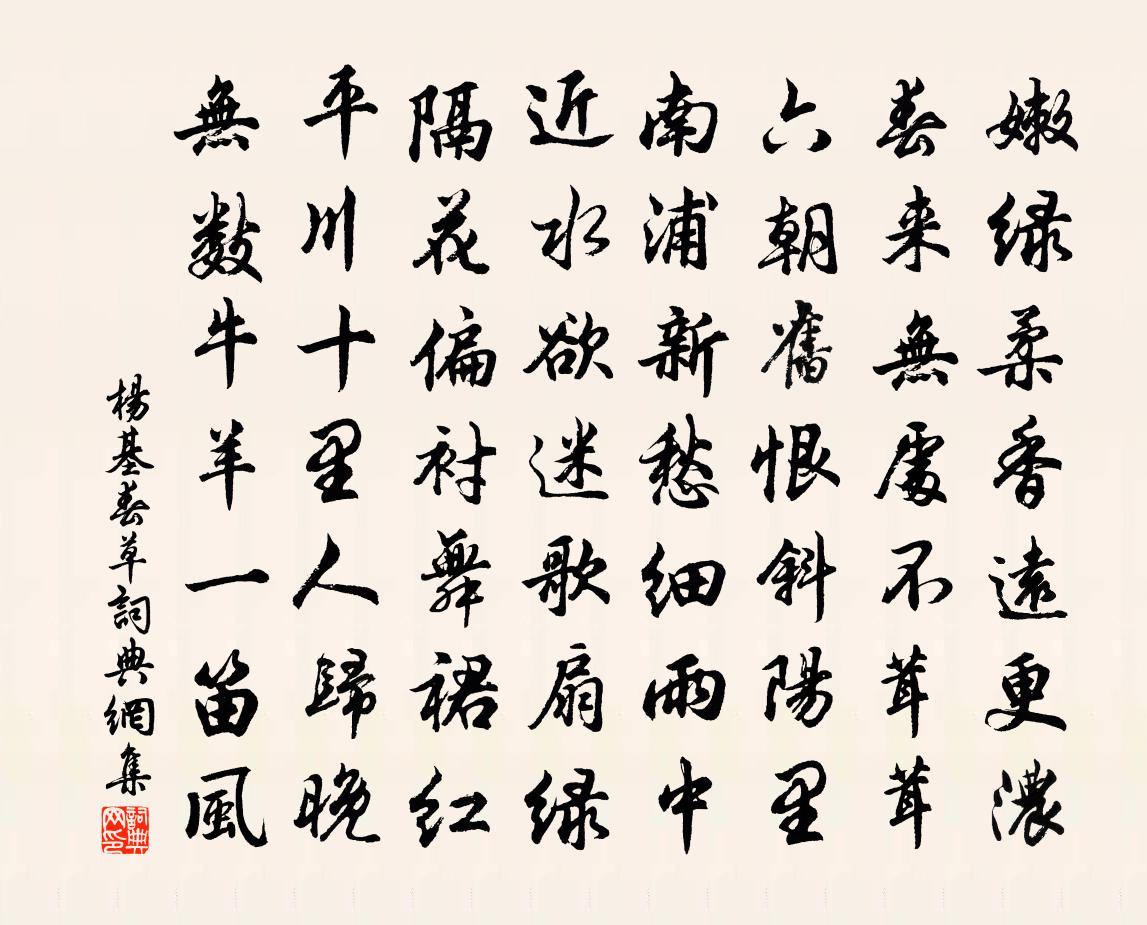 嫩绿柔香远更濃
春来無處不茸茸
六朝舊恨斜陽里
南浦新愁细雨中
近水欲迷歌扇绿
隔花偏衬舞裙红
平川十里人歸晚
無数牛羊一笛風
楊基春草詞典網集
詞典网印